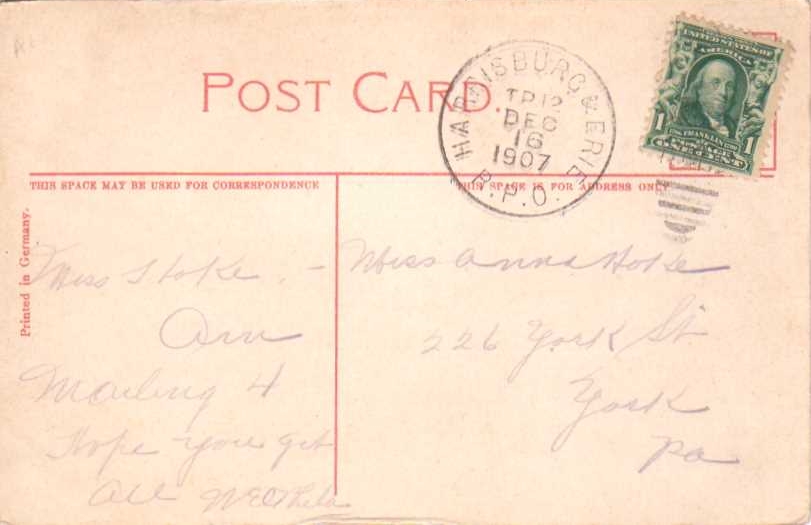 POST CARD.
HARRISBURG & ERIE
TR 12
DEC
16
1907
R.P.O.
UNITED STATES OF
AMERICA
1 FRANKLIN 1
POSTAGE
ONE CENT
THIS SPACE MAY BE USED FOR CORRESPONDENCE
THIS SPACE IS FOR ADDRESS ONLY
Printed in Germany.
Miss Hoke. –
Am
Mailing 4
Hope you get
all
Miss Anna Hoke
226 York St
York
Pa